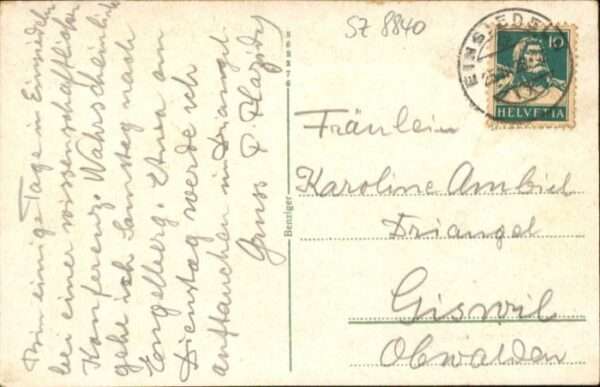 Bin einige Tage in Einsiedeln
bei einer wissenschaftlichen
Konferenz. Wahrscheinlich
gehe ich Samstag nach
Engelberg. Etwa am
Dienstag werde ich
auftauchen im Triangel.
Gruss P. Plazidus
SZ 8840
EINSIEDELN
10
HELVETIA
Benziger
Fräulein
Karoline Ambiel
Triangel
Giswil
Obwalden